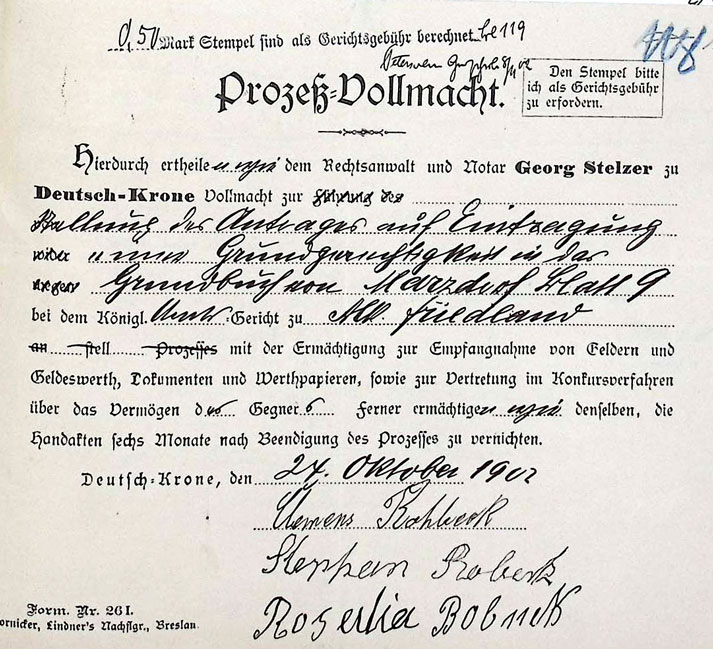 0,50 Mark Stempel sind als Gerichtsgebühr berechnet 119
Den Stempel bitte
ich als Gerichtsgebühr
zu erfordern.
Prozeß-Vollmacht.
Hierdurch ertheilen wir dem Rechtsanwalt und Notar Georg Stelzer zu
Deutsch-Krone Vollmacht zur Führung des
Stellung des Antrages auf Eintragung
wider einer Grundgerechtigkeit in das
wegen Grundbuch von Marzdorf Blatt 9
bei dem Königl. Amts-Gericht zu Mk. Friedland
an stell Prozesses mit der Ermächtigung zur Empfangnahme von Geldern und
Geldeswerth, Dokumenten und Werthpapieren, sowie zur Vertretung im Konkursverfahren
über das Vermögen des Gegners Ferner ermächtigen wir denselben, die
Handakten sechs Monate nach Beendigung des Prozesses zu vernichten.
Deutsch-Krone, den 24. Oktober 1902
Clemens
Stephan
Rosalia
Form. Nr. 26 I.
ornicker, Lindner's Nachflgr., Breslau.